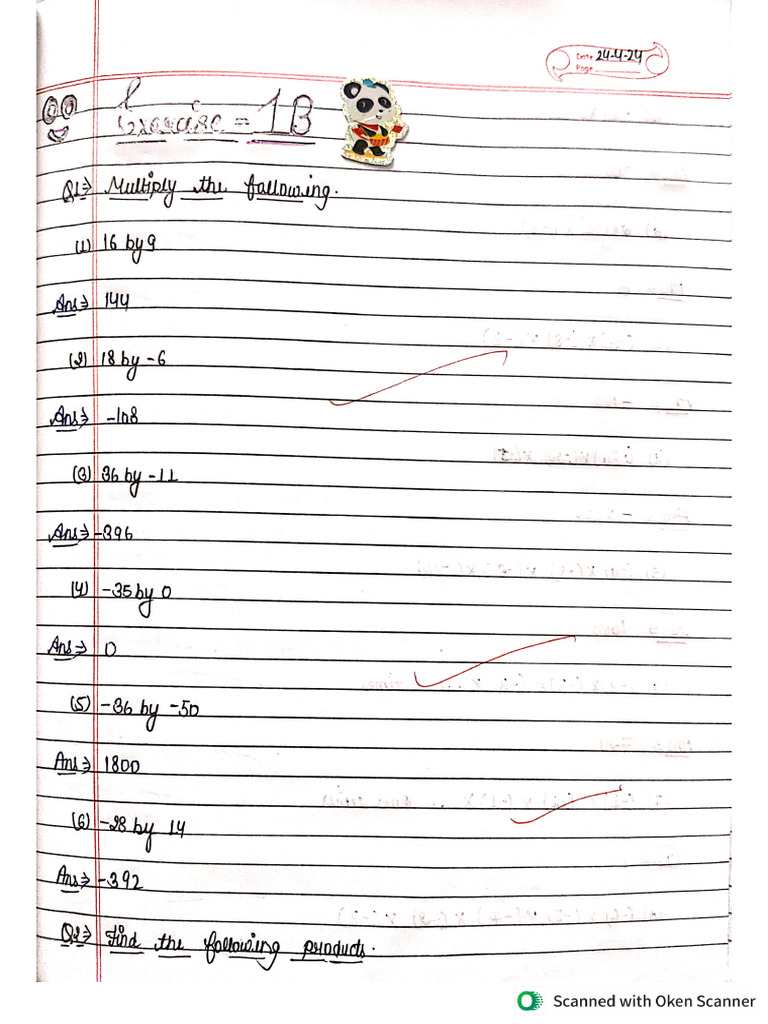 Date 24-4-24
Page
Exercise = 1B
Q1⇒ Multiply the following.
(1) 16 by 9
Ans⇒ 144
(2) 18 by -6
Ans⇒ -108
(3) 36 by -11
Ans⇒ -396
(4) -35 by 0
Ans⇒ 0
(5) -36 by -50
Ans⇒ 1800
(6) -28 by 14
Ans⇒ -392
Q2⇒ Find the following products.
Scanned with Oken Scanner